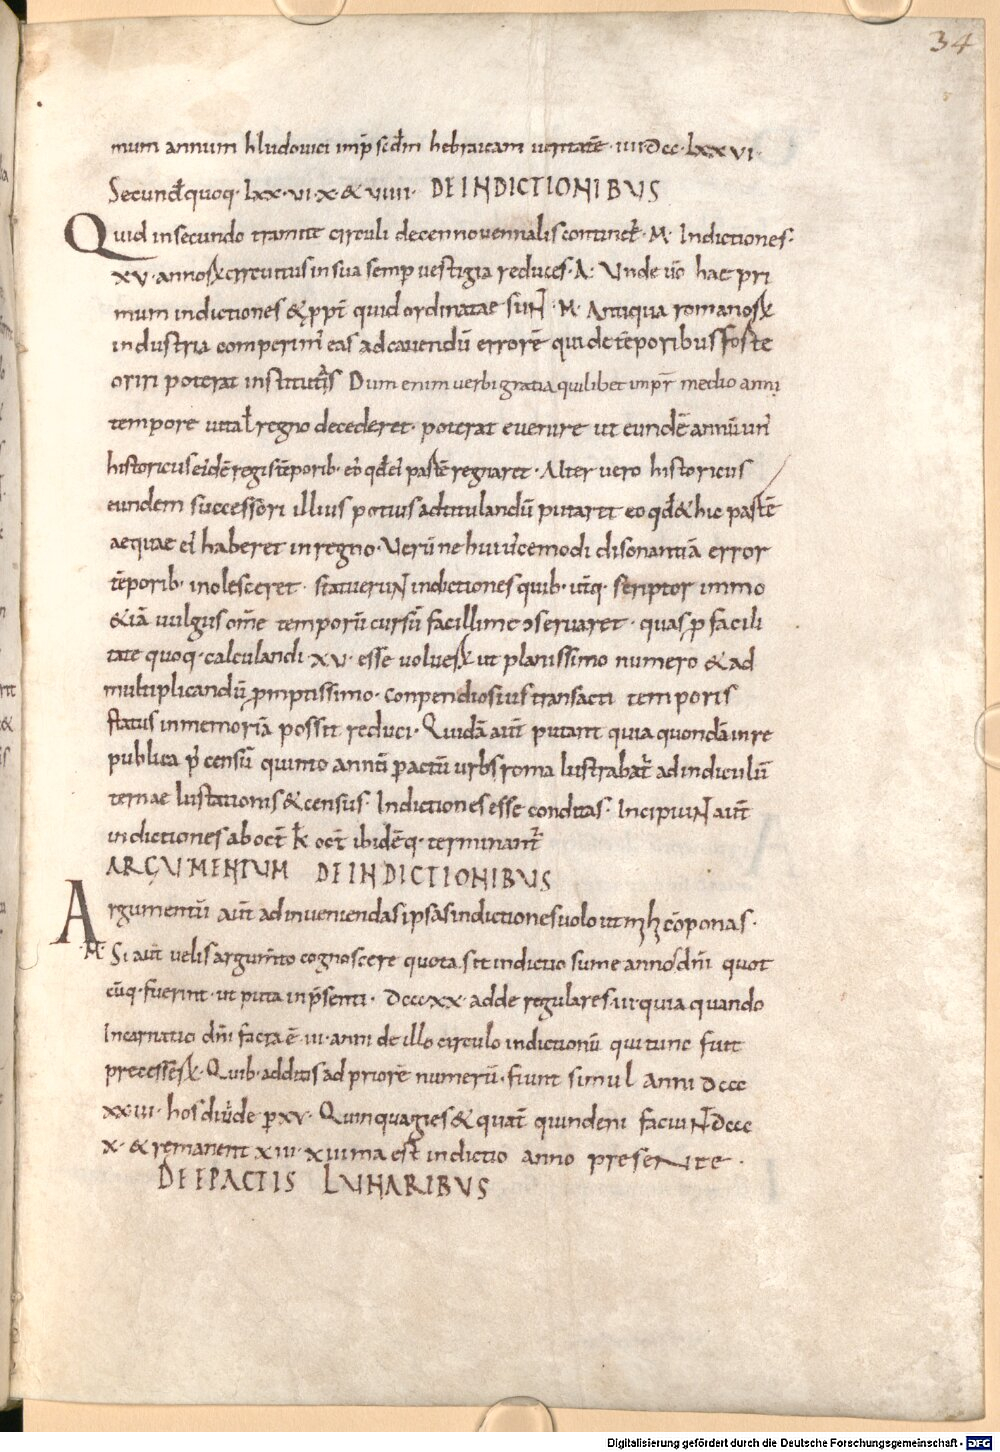 34
mum annum hludouici imp̄ scđm hebraicam ueritatē · iiii Dcc · lxxvi ·
Secund̄ quoq · lxx · vi · x · & viiii · DE INDICTIONIBUS
Quid in secundo tramite circuli decennouennalis continet̄ · M · Indictiones ·
xv · annoꝝ circuitus in sua semp uestigia reduces · Δ · Unde ū̄o hae pri
mum indictiones & ꝓpt̄ quid ordinatae suɴ̄t · M · Antiqua romanoꝝ
industria comperim̄ eas ad cauendū errorē qui de tēporibus forte
oriri poterat institut̄is Dum enim uerbi gratia quilibet impr̄ medio anni
tempore uita ł regno decederet · poterat euenire ut eundē annū un̄
historicus eidē regis tēporib · eo qđ ei partē regnaret · Alter uero historicus
eundem successori illius potius adtitulandū putarit eo qđ & hic partē
aequae ei haberet in regno · Uerū ne huiuscemodi disonantiā error
tēporib · inolesceret · statueruɴt indictiones quib · utq · scriptor immo
& iā uulgus om̄e temporū cursū facillime ɔseruaret · quas ꝓ facili
tate quoq · calculandi · xv · esse uolueꝝ ut planissimo numero & ad
multiplicandū ꝓmptissimo · conpendiosius transacti temporis
status in memoriā possit reduci · Quidā aūt putant quia quondā in re
publica ꝑ censū quinto anno ꝑactū urbs roma lustrabat̄ ad indiculū
ternae lustationis & census · Indictiones esse conditas · Incipiuɴt aūt
indictiones ab oct̄ kł oct̄ ibidēq · terminant̄
ARGUMENTUM DE INDICTIONIBUS
Argumentū aūt ad inueniendas ipsas indictiones uolo ut m̄ h̄ cōponas ·
· M · Si aūt uelis argum̄to cognoscere quota sit indictio sume annos dn̄i quot
cūq · fuerint · ut puta in p̄senti · Dcccxx · adde regulares iii · quia quando
Incarnatio dn̄i facta ē · iii · anni de illo circulo indictionū qui tunc fuit
precesseꝝ · Quib · additis ad priorē numerū · fiunt simul anni Dccc
xxiii · hos diuide ꝑ xv · Quinquagies & quat̄ quindeni faciuɴt Dccc
x · & remanent xiii · xiiima est indictio anno presente ·
DE EPACTIS LUNARIBUS
Digitalisierung gefördert durch die Deutsche Forschungsgemeinschaft - DFG